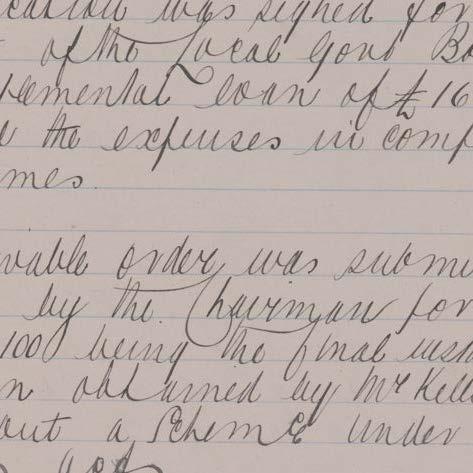 cation was signed for
of the Local Govt Bo
plemental loan of £16
the expenses in comp
mes.
vable order was submi
by the Chairman for
100 being the final inst
n obtained by Mr Kell
out a Scheme under
act